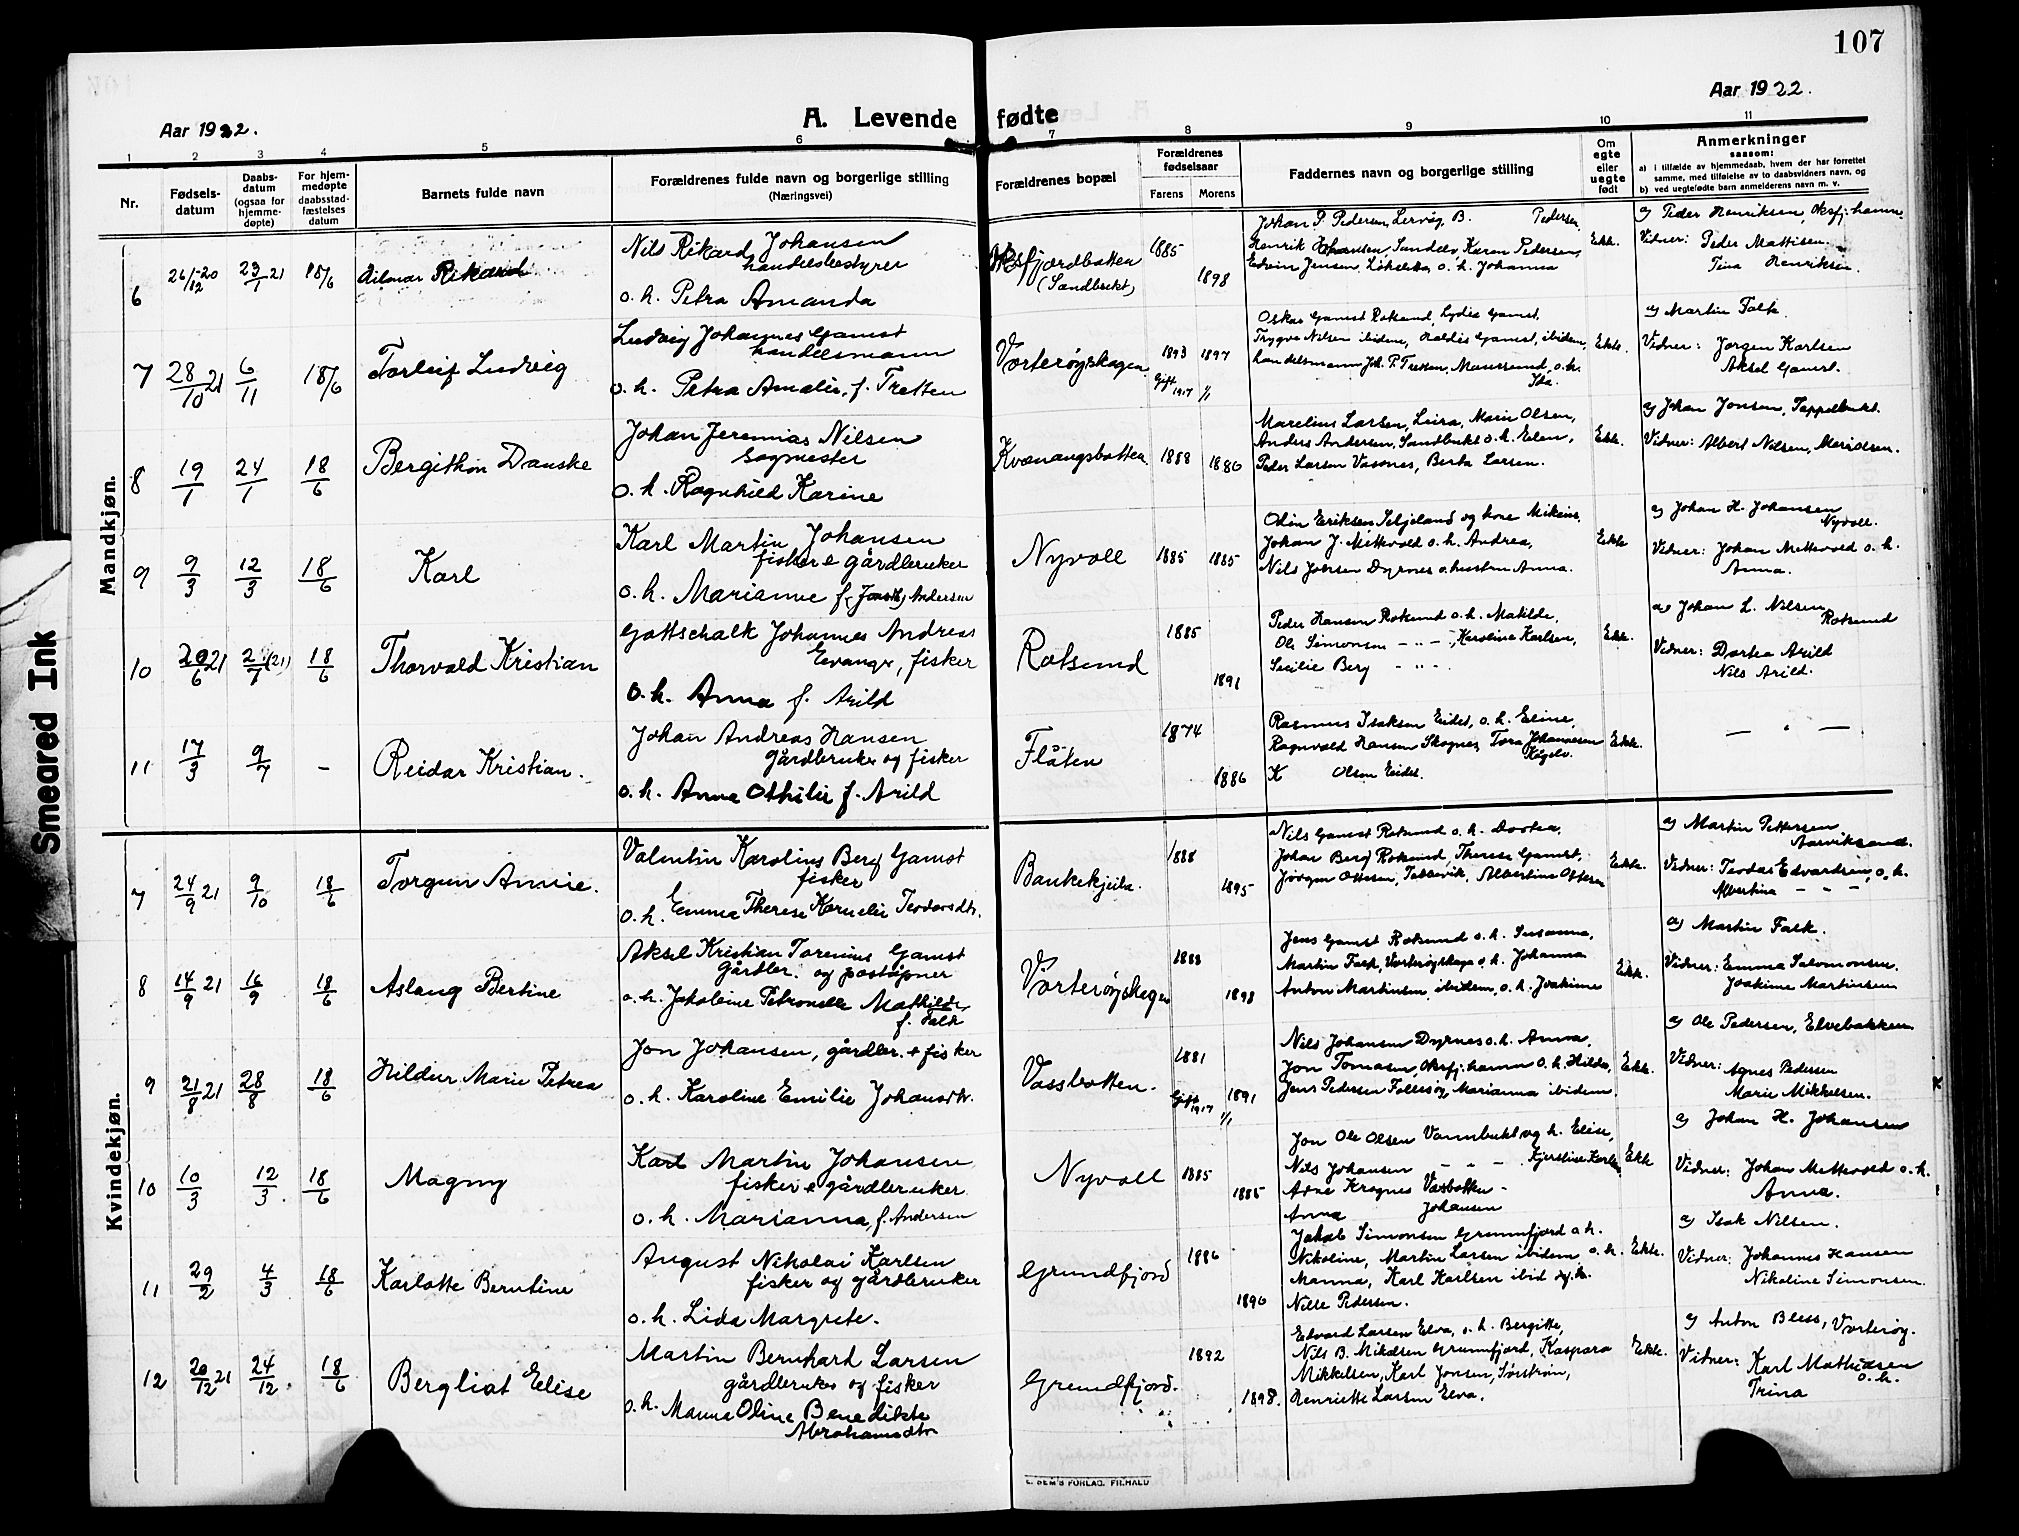 107
Aar 1922.
Aar 1922.
A. Levende fødte
1 2 3 4 5 6 7 8 9 10 11
Nr.
Fødsels-
datum
Daabs-
datum
(ogsaa for
hjemme-
døpte)
For hjem-
medøpte
daabsstad-
fæstelses
datum
Barnets fulde navn
Forældrenes fulde navn og borgerlige stilling
(Næringsvei)
Forældrenes bopæl
Forældrenes
fødselsaar
Farens Morens
Faddernes navn og borgerlige stilling
Om
egte
eller
uegte
født
Anmerkninger
saasom:
a) i tilfælde av hjemmedaab, hvem der har forrettet
samme, med tilføielse av to daabsvidners navn, og
b) ved uegtefødte barn anmelderens navn m. v.
Mandkjøn.
6 26/12-20 23/1 21 18/6 Hilmar Rikard
Nils Rikard Johansen
handelsbestyrer
o. h. Petra Amanda
Oksfjordbotten
(Sandbukt)
1885
1898
Johan P. Pedersen, Lervåg, B. Pedersen
Henrik Johansen, Sandlv, Karen Pedersen,
Edvin Jensen, Løkslette o. h. Johanna
Ekte.
a) Peder Henriksen, Oksfj.hamn.
Vidner: Peder Mattisen.
Tina Henriksen.
7 28/10 21 6/11 18/6 Torleif Ludvig
Ludvig Johannes Gamst
handelsmann
o. h. Petra Amalie, f. Tretten
Vorterøyskagen
1893 1897
Gift 1917 1/1
Oskar Gamst Rotsund, Lydia Gamst,
Trygve Nilsen ibidem, Haldis Gamst, ibidem,
handelsmann Joh. P. Tretten, Maursund, o. h.
Ida.
Ekte.
a) Martin Falk.
Vidner: Jørgen Karlsen
Aksel Gamst.
8 19/1 24/1 18/6 Bergithon Danske
Johan Jeremias Nilsen
sagmester
o. h. Ragnhild Karine
Kvænangsbotten
1888 1886
Marelius Larsen, Leira, Marie Olsen,
Anders Andersen, Sandbukt o. h. Elen,
Peder Larsen Vasnes, Berta Larsen.
Ekte.
a) Johan Jonsen, Tappelbukt.
Vidner: Albert Nilsen, Meridsen.
9 9/3 12/3 18/6 Karl
Karl Martin Johansen
fisker & gårdbruker
o. h. Marianne f. Andersen
Nyvoll
1885 1885
Odin Eriksen Seljeland og kone Mikine,
Johan J. Mettevold o. h. Andrea,
Nils Johsen Dyrnes o. hustru Anna.
Ekte
a) Johan H. Johansen
Nyvoll.
Vidner: Johan Mettevold o. h.
Anna.
10 20/6 21 2/7 (21) 18/6 Thorvald Kristian
Gottschalk Johannes Andreas
Evanger, fisker
o. h. Anna f. Arild
Rotsund
1885
1891
Peder Hansen Rotsund o. h. Matilde,
Ole Simonsen - " -, Karoline Karlsen,
Secilie Berg - " -.
Ekte.
a) Johan L. Nilsen
Rotsund
Vidner: Dortea Arild
Nils Arild.
11 17/3 9/7 - Reidar Kristian.
Johan Andreas Hansen
gårdbruker og fisker
o. h. Anna Othilie f. Arild
Flåten
1874
1886
Rasmus Isaksen Eidet, o. h. Eline,
Ragnvald Hansen Skognes, Tora Johannesen
Kågelv.
K Olsen Eidet.
Ekte.
— " —
Kvindekjøn.
7 24/9 21 9/10 18/6 Torgun Annie.
Valentin Karolius Berg Gamst
fisker
o. h. Emma Therese Kornelie Teodorsdtr.
Bankekjeila.
1888
1895
Nils Gamst Rotsund o. h. Dortea,
Johan Berg Rotsund, Therese Gamst,
Jørgen Ottesen, Tabbevik, Albertine Ottesen
Ekte.
a) Martin Pettersen
Aarviksand.
Vidner: Teodor Edvardsen, o. h.
Albertina - - -
8 14/9 21 16/9 18/6 Aslaug Bertine
Aksel Kristian Torenius Gamst
Gårdbr. og poståpner
o. h. Jakobine Petronelle Mathilde,
f. Falk
Vorterøyskagen
1883
1898
Jens Gamst Rotsund o. h. Susanna,
Martin Falk, Vorterøyskagen o. h. Johanna
Anton Martinsen, ibidem, o. h. Joakime
Ekte.
a) Martin Falk.
Vidner: Emma Salomonsen.
Joakime Martinsen
9 21/8 21 28/8 18/6 Hildur Marie Petrea
Jon Johansen, gårdbr. + fisker
o. h. Karoline Emilie Johansdtr.
Vassbotten.
1881
Gift 1917 1/1 1891
Nils Johansen Dyrnes o. h. Anna,
Jon Tomasen, Oksfj.hamn o. h. Hilda,
Jens Pedersen Follesøy, Marianna ibidem.
Ekte.
a) Ole Pedersen, Elvebakken
Vidner: Agnes Pedersen
Marie Mikkelsen.
10 10/3 12/3. 18/6 Magny
Karl Martin Johansen
fisker & gårdbruker
o. h. Marianna, f. Andersen
Nyvoll
1885
1885
Jon Ole Olsen Vannbukt og h. Elise,
Nils Johansen - " -. Kjerstine Karlsen
Arne Kragnes Vasbotten -
Anna Johansen
Ekte
a) Johan H. Johansen
Vidner: Johan Mettevold o. h.
Anna.
11 29/2 4/3 18/6 Karlotte Berntine
August Nikolai Karlsen
fisker og gårdbruker
o. h. Lida Margrete.
Grundfjord
1886
1890
Jakob Simonsen Grunnfjord o. h.
Nikoline, Martin Larsen ibidem o. h.
Manna, Karl Karlsen ibid og h.
Nelle Pedersen.
Ekte.
a) Isak Nilsen.
Vidner: Johannes Hansen
Nikoline Simonsen.
12 20/12 21 24/12. 18/6 Bergliot Elise
Martin Bernhard Larsen
gårdbruker og fisker
o. h. Manna Oline Benedikte
Abrahamsdtr
Grundfjord.
1892
1898.
Edvard Larsen Elva, o. h. Bergitte,
Nils B. Mikalsen Grunnfjord, Kaspara
Mikkelsen, Karl Jonsen, Sørstrøm,
Henriette Larsen Elva.
Ekte.
a) Anton Bless, Vorterøy.
Vidner: Karl Mathisen
o. h.
Trina
E. SEM'S FORLAG, FR.HALD
Smeared Ink